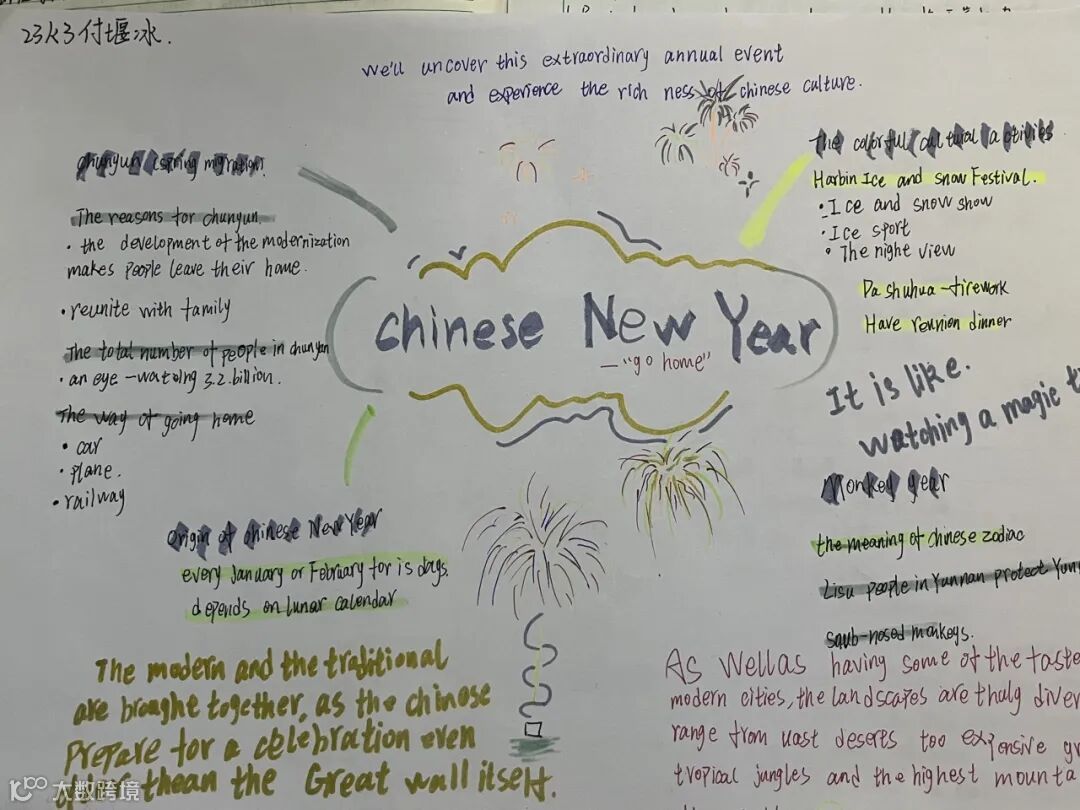 23K3付堰冰.
We'll uncover this extraordinary annual event
and experience the rich ness of chinese culture.
chunyun (spring migration).
The reasons for chunyun.
· the development of the modernization
makes people leave their home.
· reunite with family
The total number of people in chunyun
· an eye-watng 3.2.billion.
The way of going home
· car
· plane.
· railway
The colorful cultural activities
Harbin Ice and snow Festival.
· Ice and snow show
· Ice sport
· The night view
Da shuhua-firework
Have reunion dinner
chinese New Year
—"go home"
It is like.
watching a magic
Monkey year
the meaning of chinese zodiac
Lisu people in Yunnan protect
snub-nosed monkeys.
Origin of chinese New Year
every January or February for is days.
depends on lunar calendar
The modern and the traditional
are brought together, as the chinese
Prepare for a celebration even
thean the Great wall itself.
As Wellas having some of the
modern cities, the landscapes are thuly
range from vast deserts too expensive
tropical jungles and the highest
大数跨境